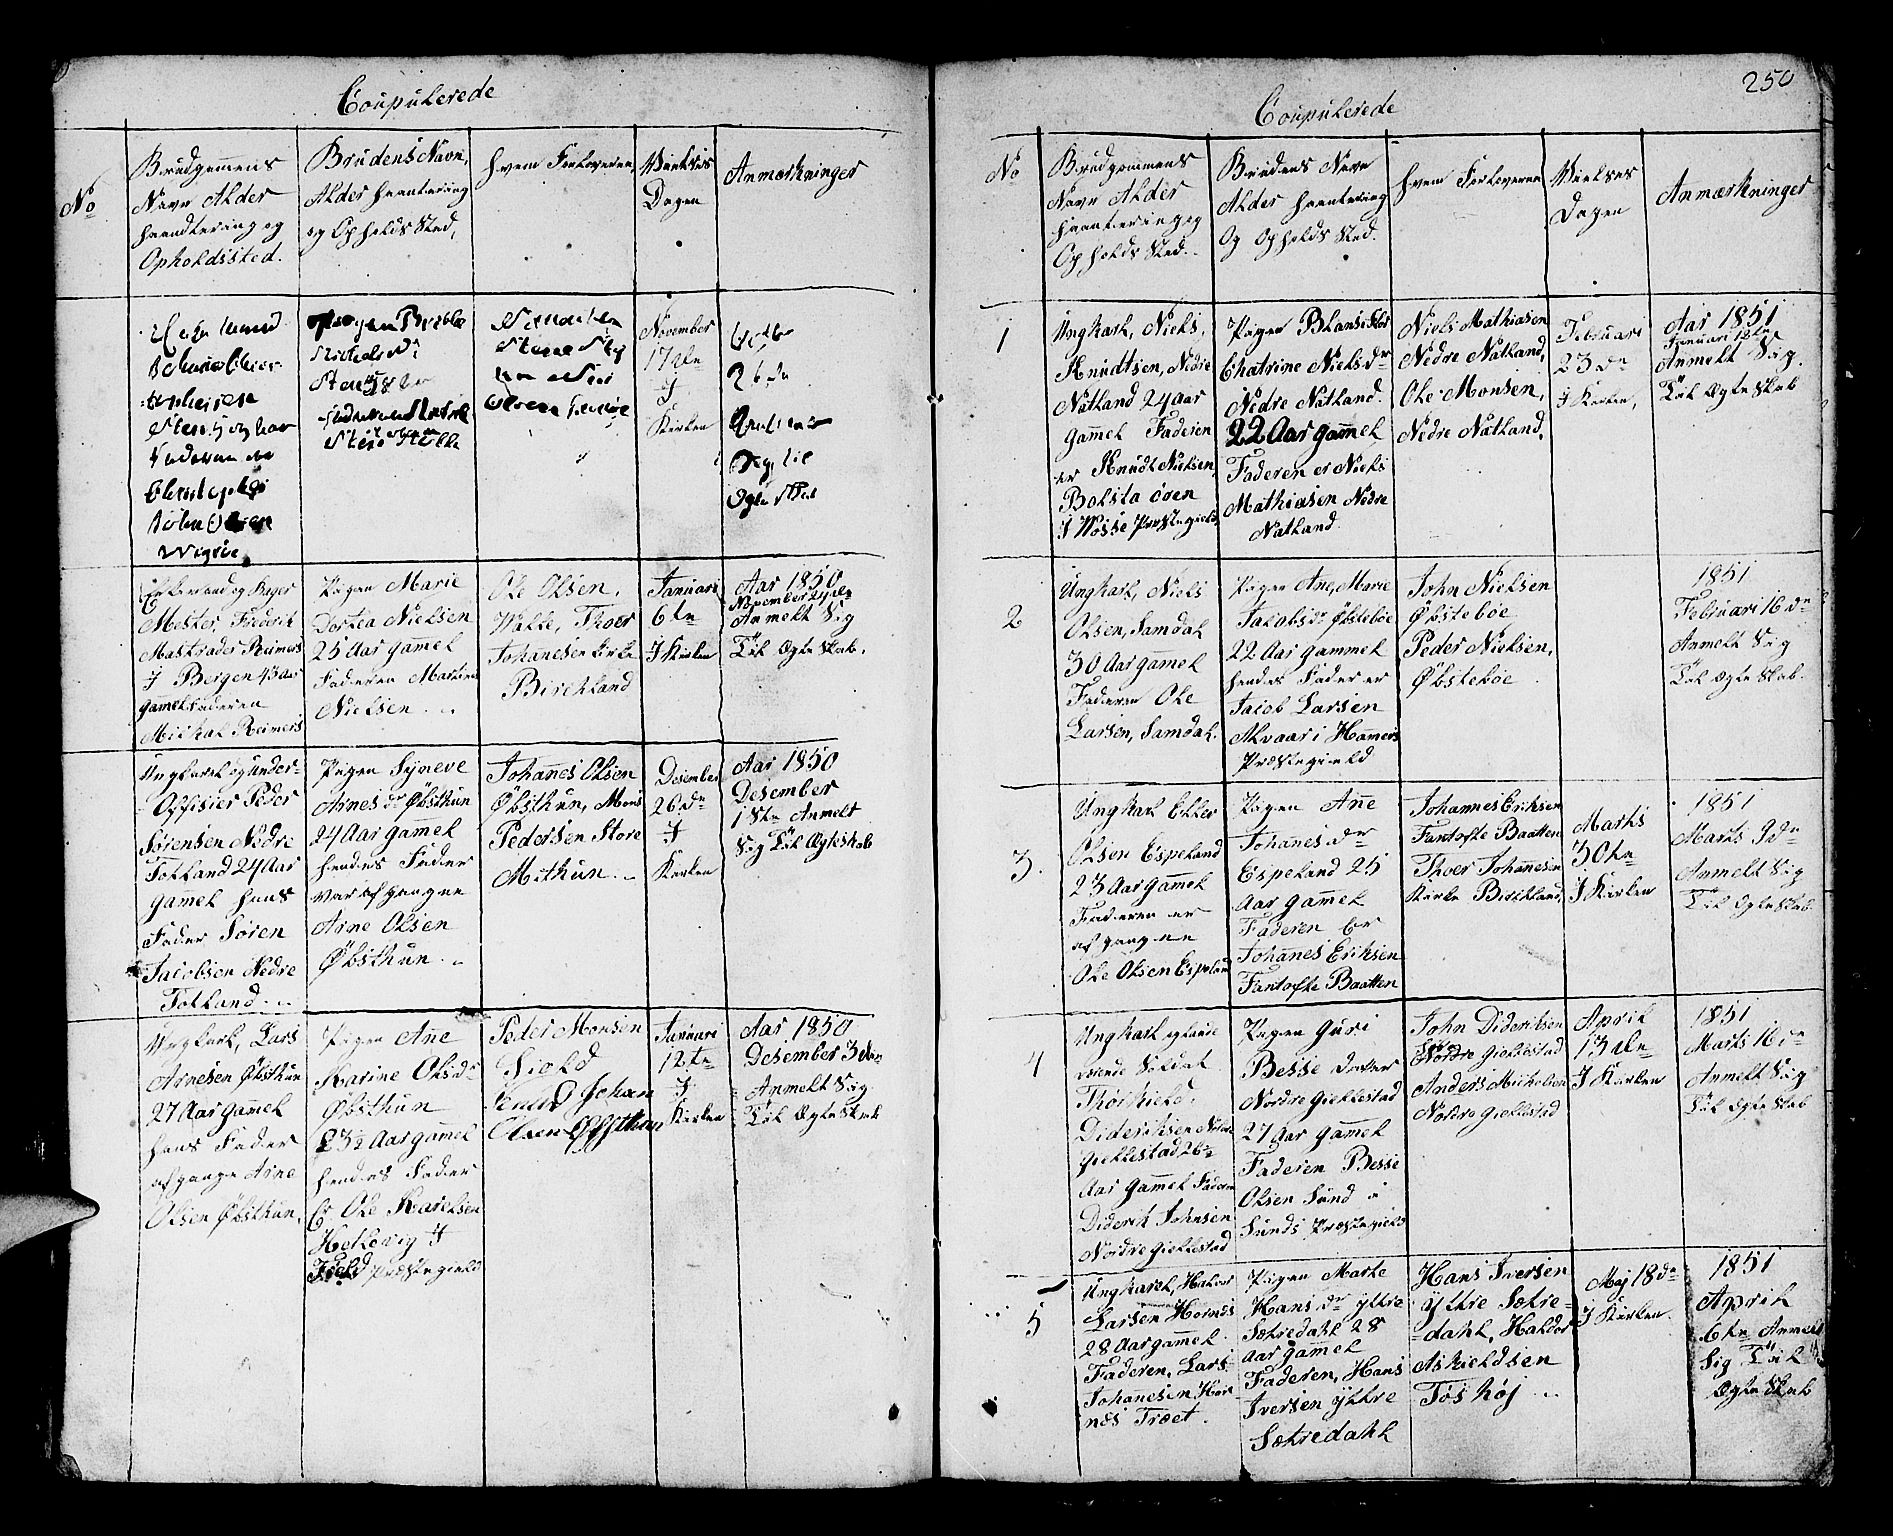 Coupulerede
No
Brudgomens
Navn Alder
haandtering og
Opholdssted.
Brudens Navn,
Alder haantering
og Opholds Sted,
hvem Forloveren
Vielses
Dagen
Anmærkninger
Faderen er
November
17de
I
Kirken
26de
Mester, Frederik
Reimers
I Bergen 43 Aar
gamel Faderen
Michal Reimers
Pigen Marie
Dortea Nielsen
25 Aar gamel
Faderen Martin
Nielsen
Ole Olsen,
Thoer
Johanesen Kirke
Birchland
Januari
6te
I Kirken
Aar 1850
Anmelt Sig
Til Ægte Skab.
Ungkarl og under-
Offisier Peder
Sørensen Nedre
Totland 24 Aar
gamel hans
Fader Søren
Jacobsen Nedre
Totland
Pigen Syneve
Arnes dr Øbsthun
24 Aar gamel
hendes Fader
var afgangne
Arne Olsen
Øbsthun
Johanes Olsen
Øbsthun, Mons
Pedersen Store
Milthun
Desember
26de
I
Kirken
Aar 1850
Desember
1ste Anmelt
Sig Til Ægteskab
Ungkarl, Lars
Arnesen Øbsthun
27 Aar gamel
hans Fader
afgangne Arne
Olsen Øbsthun,
Pigen Ane
Karine Olsdr
Øbsthun
23½ Aar gamel
hendes Fader
Er Ole Karelsen
I
Præstegield
Peder Monsen
Sield
Johan
Olsen Øbsthun
Januari
12te
I
Kirken
Aar 1850
Desember 3de
Anmelt Sig
Til Ægte Skab
250
Coupulerede
No
Brudgommens
Navn Alder
haantering og
Opholds Sted.
Brudens Navn
Alder haantering
Og Opholds Sted.
hvem Forloveren
Vielses
Dagen
Anmærkninger
1
Ungkarl, Niels,
Knudtsen, Nedre
Natland 24 aar
gamel Faderen
er Knudt Nielsen,
Bolstaören
I Wosse Præstegield
Pigen
Chatrine Nielsdr
Nedre Natland.
22 Aar gamel
Faderen er Niels
Mathiasen Nedre
Natland
Niels Mathiasen
Nedre Natland,
Ole Monsen,
Nedre Natland,
Februari
23de
I Kirken,
Aar 1851
Januari 12te
Anmelt Sig.
Til Ægte Skab
2
Ungkarl, Niels
Olsen, Samdal
30 Aar gamel
Faderen Ole
Larsen, Samdal.
Pigen Ane, Marie
Jacobsdr Øbstebøe
22 Aar gammel
hendes Fader er
Jacob Larsen
Alvaar i Hamers
Præstegield
John Nielsen
Øbstebøe
Peder Nielsen,
Øbstebøe
1851
Februari 16de
Anmelt Sig
Til Ægte Skab.
3.
Ungkarl Eller
Olsen Espeland
23 Aar gamel
Faderen er
afgangne
Ole Olsen Espeland
Pigen Ane
Johanes dr
Espeland 25
aar gamel
Faderen Er
Johanes Eriksen
Fantofte Baatten
Johannes Eriksen
Fantofte Baatten
Thoer Johannesen
Kirke Birchland,
Marts
30te
I Kirken
1851
Marts 9de
Anmelt Sig
Til Ægte Skab
4
Ungkarl
Soldat
Thorkield.
Dideriksen Nordre
Giellestad 26
Aar gamel Faderen
Diderik Johnsen
Nordre Giellestad
Pigen Guri
Besse dater
Nordre Giellestad
27 Aar gamel
Faderen Besse
Olsen Sund i
Sunds Præstegield
John Dideriksen
Nordre Giellestad
Anders Michelsen
Nordre Giellestad
April
13de
I Kirken
1851
Marts 16de
Anmelt Sig
Til Ægte Skab
5
Ungkarl, Haldor
Larsen Hornes
28 Aar gamel.
Faderen, Lars
Johanesen Hor
nes Træet.
Pigen Marte
Hans dr Yttre
Sælredahl 28
aar gamel
Faderen, Hans
Iversen Yttre
Sælredahl
Hans Iversen
Yttre Sælre-
-dahl, Haldor
Askieldsen
Toshøj
Maj 18de
I Kirken.
1851
April
6te Anmelt
Sig Til
Ægte Skab